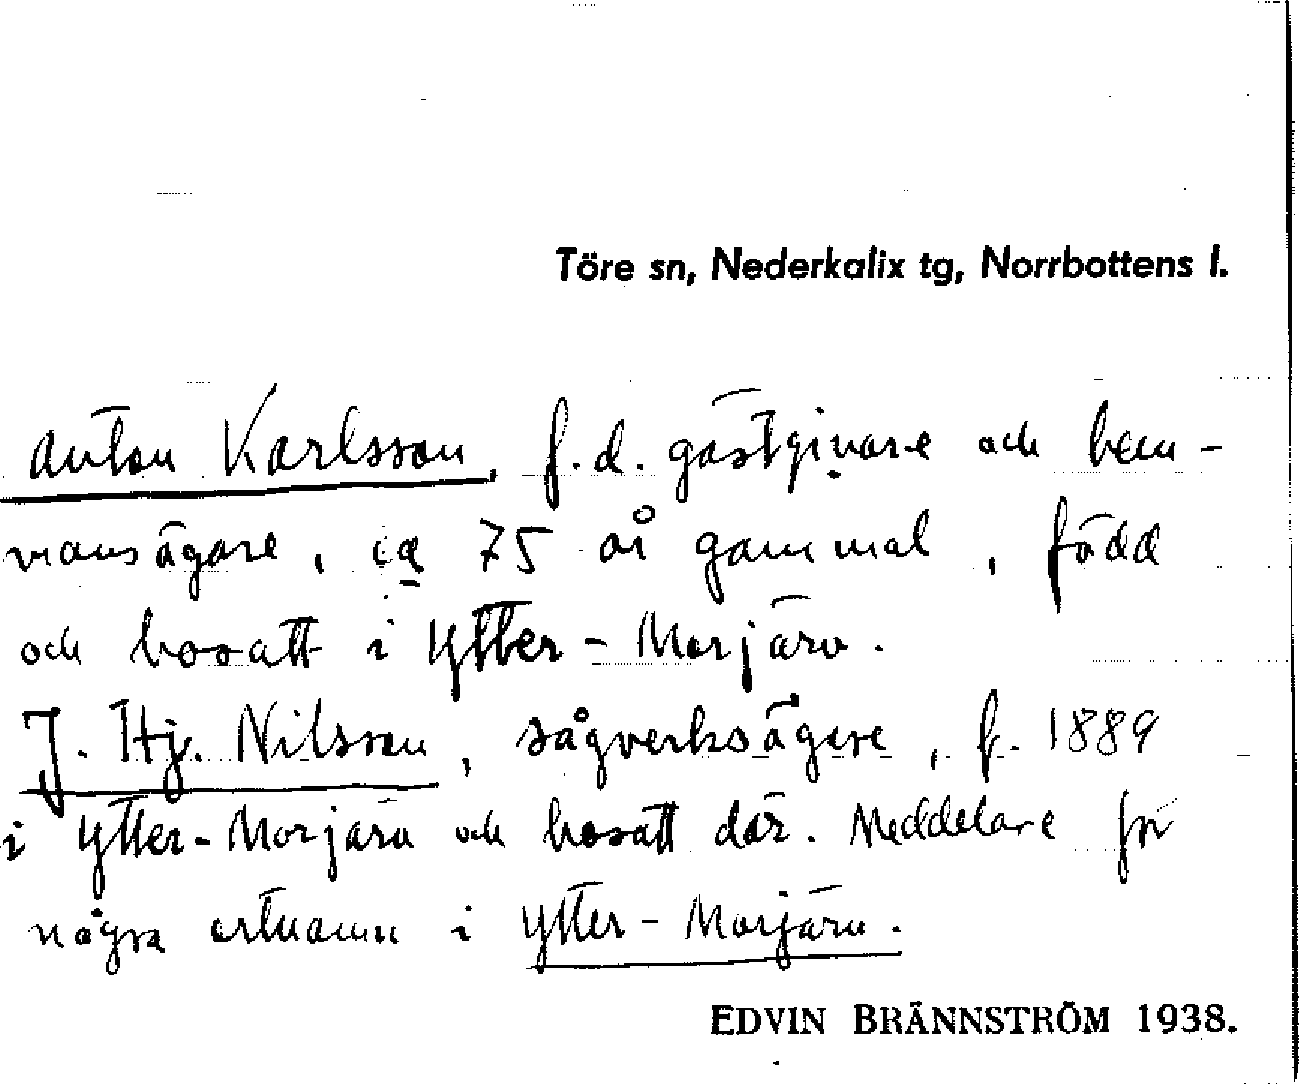 Töre sn, Nederkalix tg, Norrbottens l.
Anton Karlsson, f.d. gästgivare och hem-
mansägare, ca 75 år gammal, född
och bosatt i Ytter-Morjärv.
J. Hj. Nilsson, sågverksägare, f. 1889
i Ytter-Morjärv och bosatt där. Meddelare för
några ortnamn i Ytter-Morjärv.
EDVIN BRÄNNSTRÖM 1938.